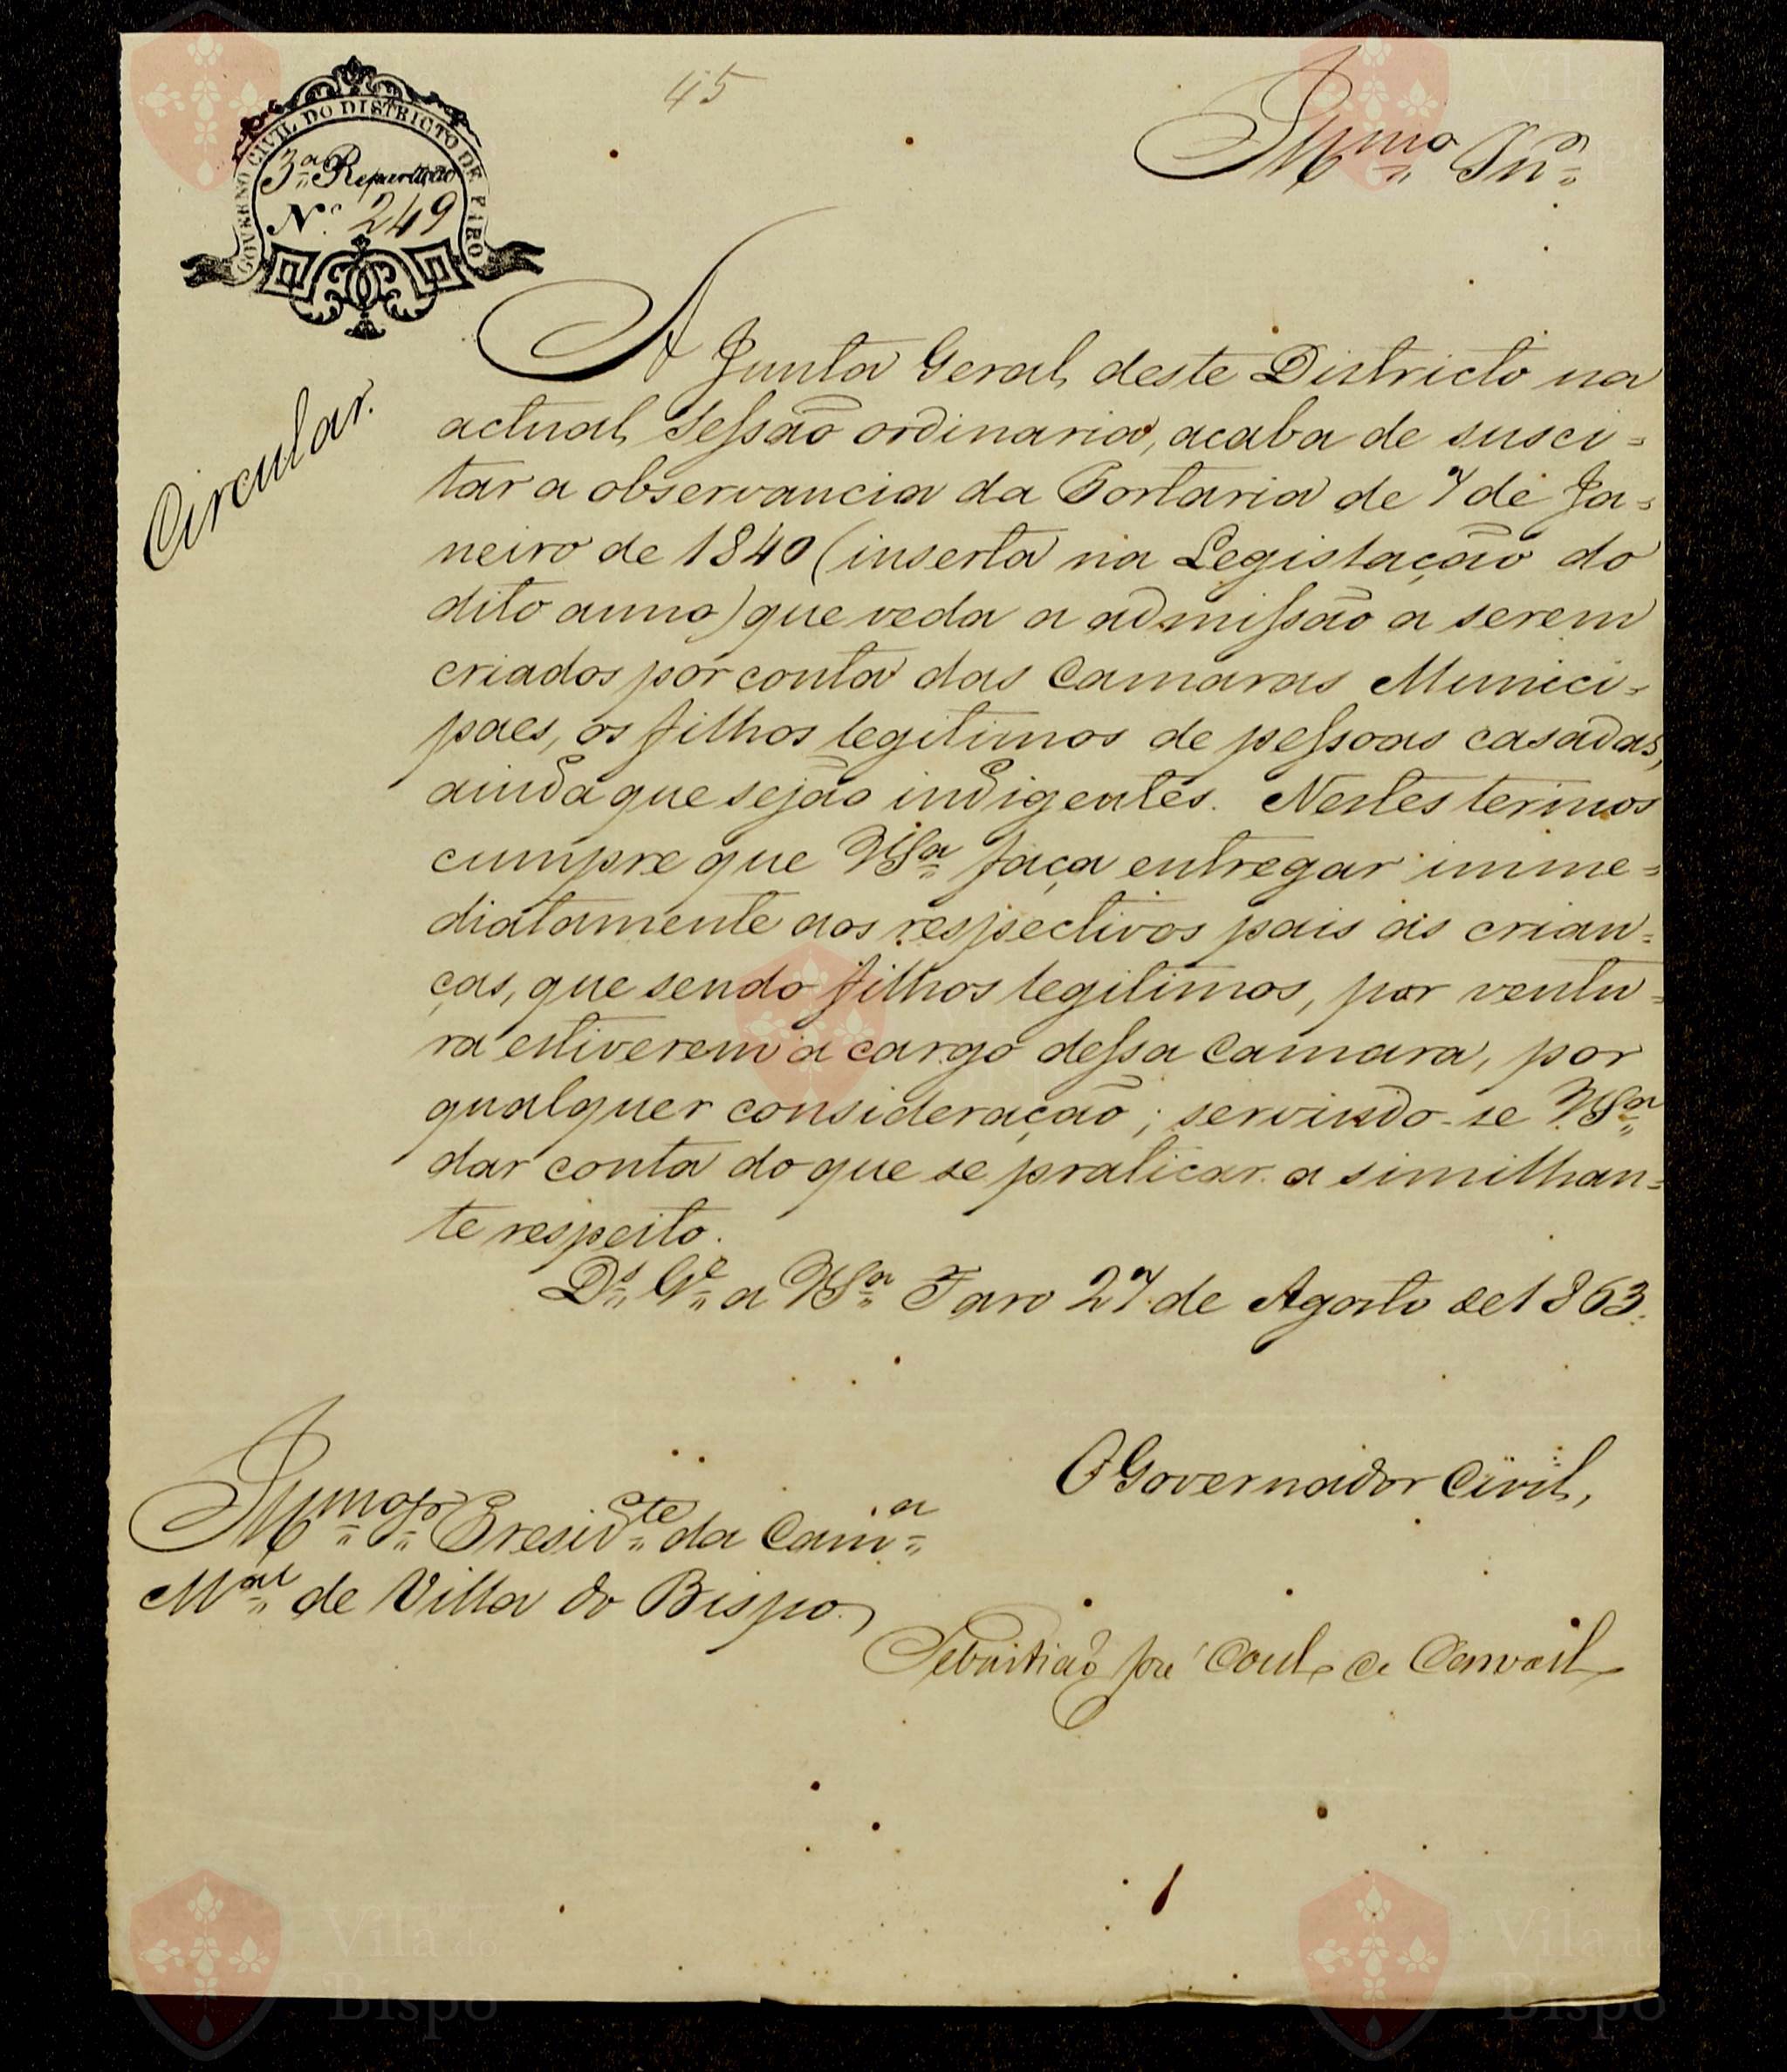 45
GOVERNO CIVIL DO DISTRICTO DE FARO
3.ª Repartição
N.º 249
Illmo Snr.
Circular.
A Junta Geral deste Districto na
actual Sessão ordinaria, acaba de susci=
tar a observancia da Portaria de 7 de Ja=
neiro de 1840 (inserta na Legislação do
dito anno) que veda a admissão a serem
criados por conta das Camaras Munici=
paes, os filhos legitimos de pessoas casadas,
ainda que sejão indigentes. Nestes termos
cumpre que VSª faça entregar imme=
diatamente aos respectivos pais as crian=
ças, que sendo filhos legitimos, por ventu=
ra estiverem a cargo dessa Camara, por
qualquer consideração; servindo-se VSª
dar conta do que se praticar a similhan=
te respeito.
Ds. Ge. a VSª Faro 27 de Agosto de 1863.
O Governador Civil,
Illmo Sr. Presidte da Camª
Mal de Villa do Bispo
Sebastião José de
Vila do
Bispo
Vila do
Bispo